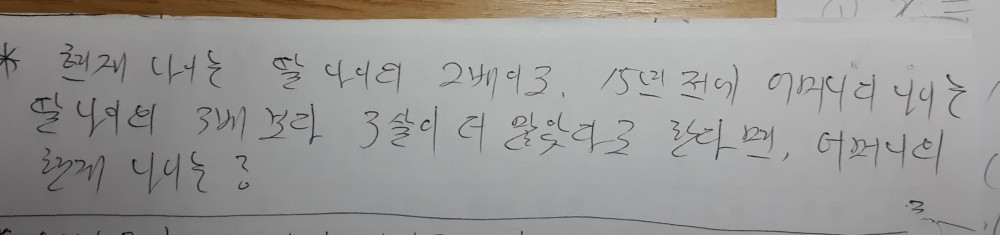 * 현재 나이는 딸 나이의 2배이고, 15년 전에 어머니의 나이는
딸 나이의 3배 보다 3살이 더 많았다고 한다면, 어머니의
현재 나이는?